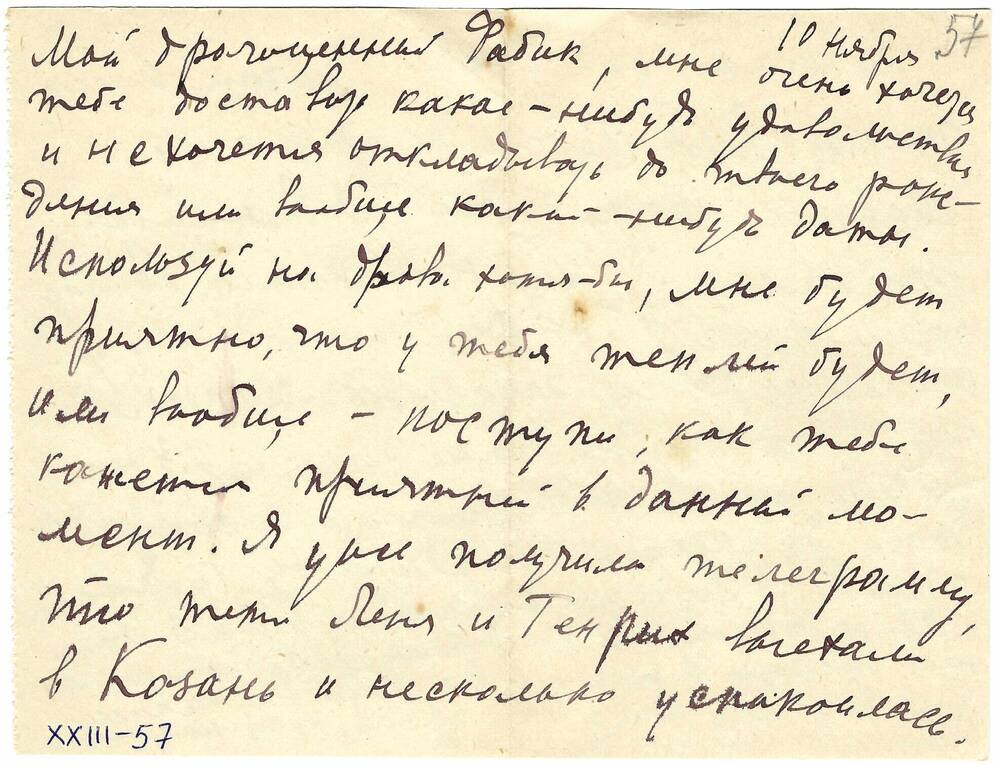 10 ноября 57
Мой драгоценный Фабик, мне очень хочется
тебе доставить какое-нибудь удовольствие
и не хочется откладывать до твоего рож-
дения или вообще какой-нибудь даты.
Используй на дрова хотя-бы, мне будет
приятно, что у тебя теплей будет,
или вообще - поступи, как тебе
кажется приятней в данный мо-
мент. Я уже получила телеграмму,
что тетя Леня и Генрих выехали
в Казань и несколько успокоилась.
XXIII-57